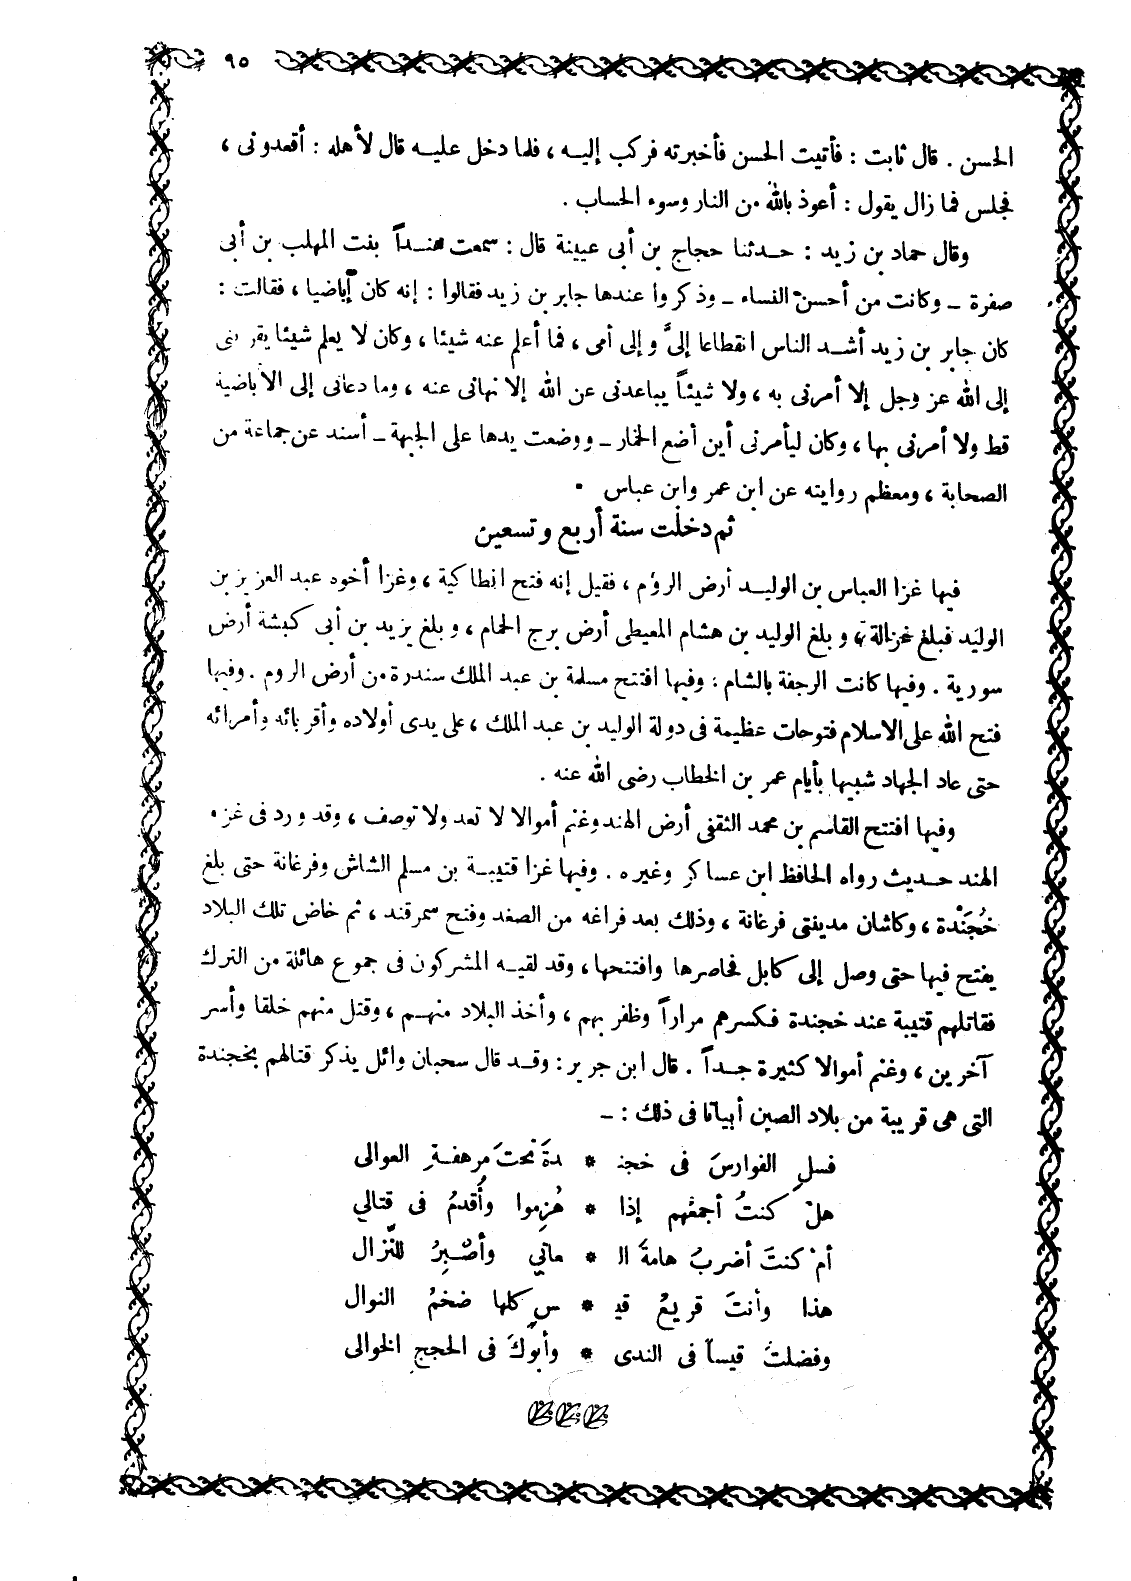 ٩٥
الحسن . قال ثابت : فأتيت الحسن فأخبرته فركب إليه ، فلما دخل عليه قال لأهله : أقعدونى ،
فجلس فما زال يقول : أعوذ بالله من النار وسوء الحساب .
وقال حماد بن زيد : حدثنا حجاج بن أبى عيينة قال : سمعت هنداً بنت المهلب بن أبى
صفرة ـ وكانت من أحسن النساء ـ وذكروا عندها جابر بن زيد فقالوا : إنه كان إباضيا ، فقالت :
كان جابر بن زيد أشد الناس انقطاعا إلىَّ وإلى أمى ، فما أعلم عنه شيئا ، وكان لا يعلم شيئا يقربنى
إلى الله عز وجل إلا أمرنى به ، ولا شيئاً يباعدنى عن الله إلا نهانى عنه ، وما دعانى إلى الأباضية
قط ولا أمرنى بها ، وكان ليأمرنى أين أضع الخمار ـ ووضعت يدها على الجبهة ـ أسند عن جماعة من
الصحابة ، ومعظم روايته عن ابن عمر وابن عباس .
ثم دخلت سنة أربع وتسعين
فيها غزا العباس بن الوليد أرض الروم ، فقيل إنه فتح انطاكية ، وغزا أخوه عبد العزيز بن
الوليد فبلغ غزالة ، وبلغ الوليد بن هشام المعيطى أرض برج الحمام ، وبلغ يزيد بن أبى كبشة أرض
سورية . وفيها كانت الرجفة بالشام : وفيها افتتح مسلمة بن عبد الملك سندرة من أرض الروم . وفيها
فتح الله على الاسلام فتوحات عظيمة فى دولة الوليد بن عبد الملك ، على يدى أولاده وأقربائه وأمرائه
حتى عاد الجهاد شبيها بأيام عمر بن الخطاب رضى الله عنه .
وفيها افتتح القاسم بن محمد الثقفى أرض الهند وغنم أموالا لا تعد ولا توصف ، وقد ورد فى غزو
الهند حديث رواه الحافظ ابن عساكر وغيره . وفيها غزا قتيبة بن مسلم الشاش وفرغانة حتى بلغ
خُجَنْدة ، وكاشان مدينتى فرغانة ، وذلك بعد فراغه من الصغد وفتح سمرقند ، ثم خاض تلك البلاد
يفتح فيها حتى وصل إلى كابل فحاصرها وافتتحها ، وقد لقيه المشركون فى جموع هائلة من الترك
فقاتلهم قتيبة عند خجندة فكسرهم مراراً وظفر بهم ، وأخذ البلاد منهم ، وقتل منهم خلقا وأسر
آخرين ، وغنم أموالا كثيرة جداً . قال ابن جرير : وقد قال سحبان وائل يذكر قتالهم بخجندة
التى هى قريبة من بلاد الصين أبياتا فى ذلك : ـ
فسلِ الفوارسَ فى خجنـ * ـدةَ تحتَ مرهفةِ العوالى
هلْ كنتُ أجمعُهم إذا * هُزِموا وأُقدمُ فى قتالي
أمْ كنتَ أضربُ هامةَ الـ * ـعاتي وأصْبِرُ للنّزال
هذا وأنتَ قريعُ قيـ * ـسٍ كلها ضخمُ النوال
وفضلتَ قيساً فى الندى * وأبوكَ فى الحجج الخوالى